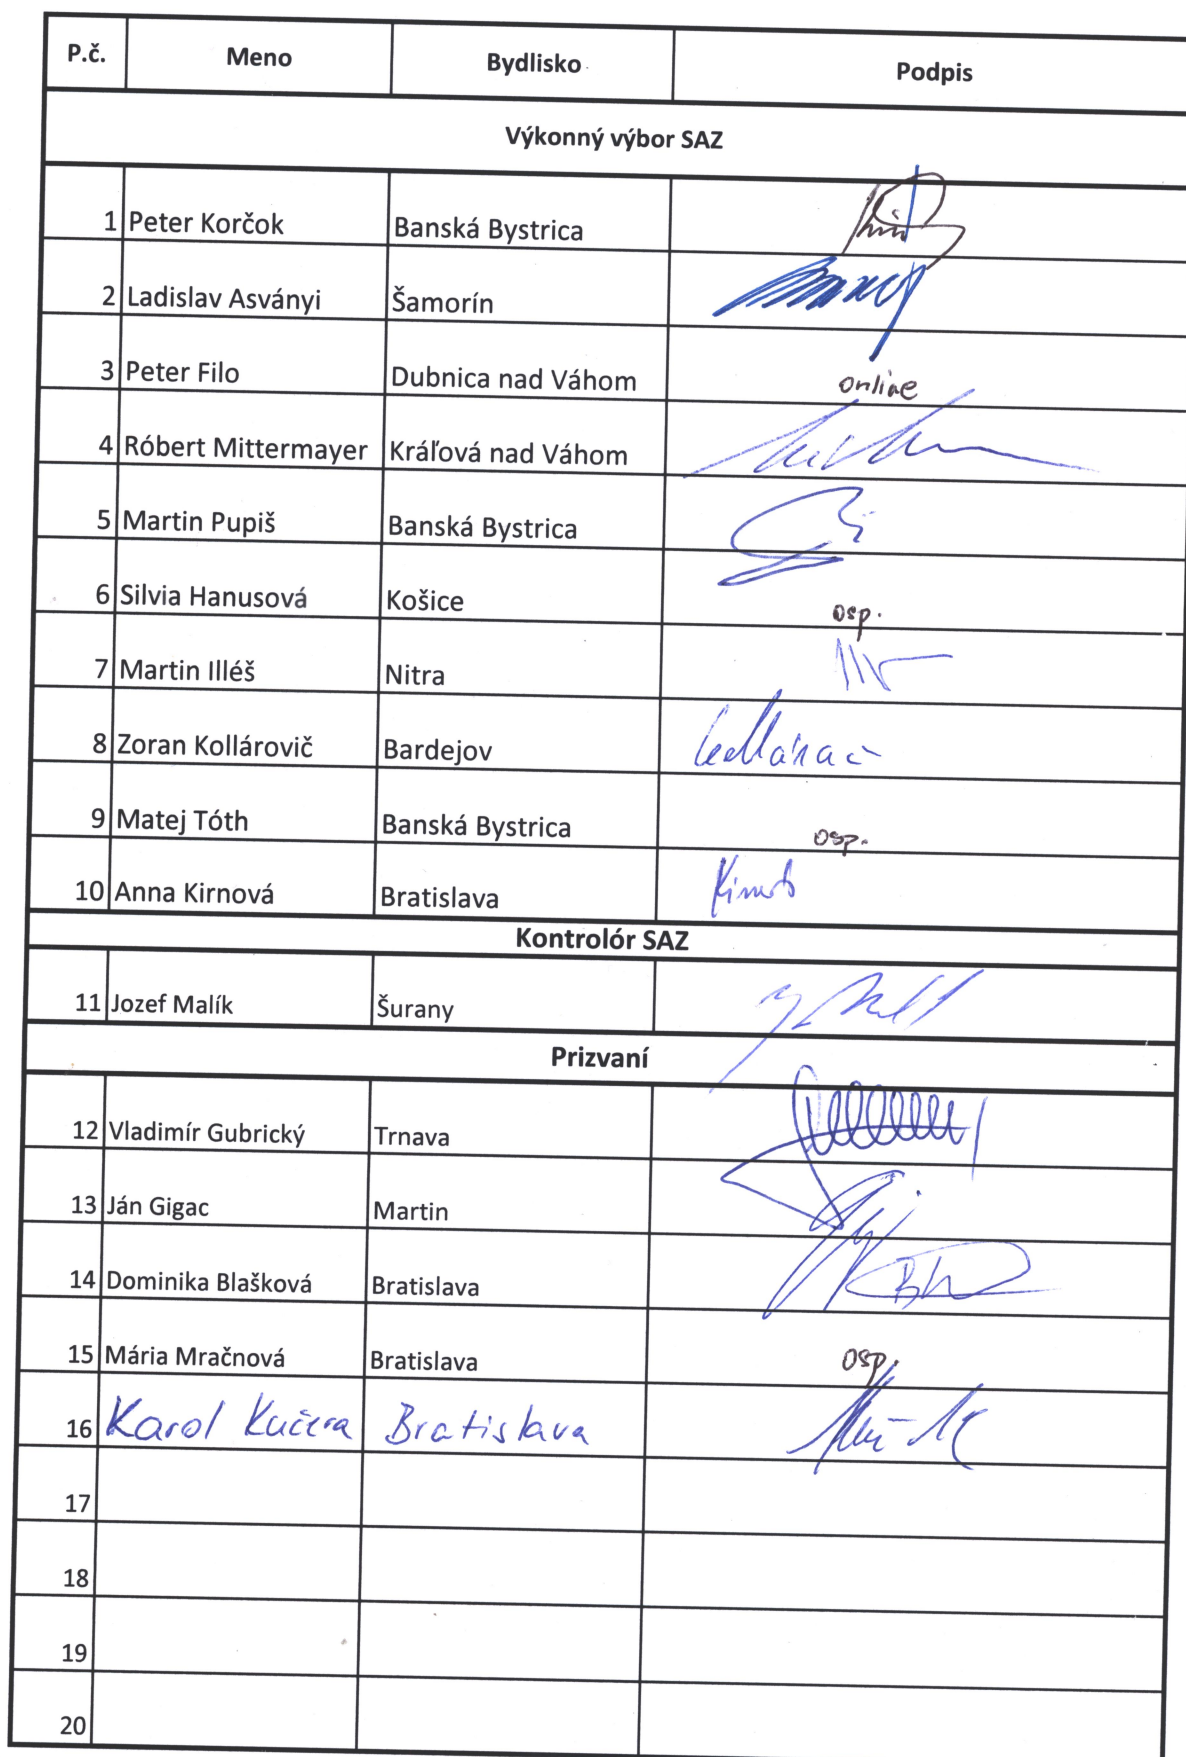 P.č. Meno Bydlisko Podpis
Výkonný výbor SAZ
1 Peter Korčok Banská Bystrica
2 Ladislav Asványi Šamorín
3 Peter Filo Dubnica nad Váhom online
4 Róbert Mittermayer Kráľová nad Váhom
5 Martin Pupiš Banská Bystrica
6 Silvia Hanusová Košice osp.
7 Martin Illéš Nitra
8 Zoran Kollárovič Bardejov
9 Matej Tóth Banská Bystrica osp.
10 Anna Kirnová Bratislava
Kontrolór SAZ
11 Jozef Malík Šurany
Prizvaní
12 Vladimír Gubrický Trnava
13 Ján Gigac Martin
14 Dominika Blašková Bratislava
15 Mária Mračnová Bratislava osp.
16 Karol Kučera Bratislava
17
18
19
20